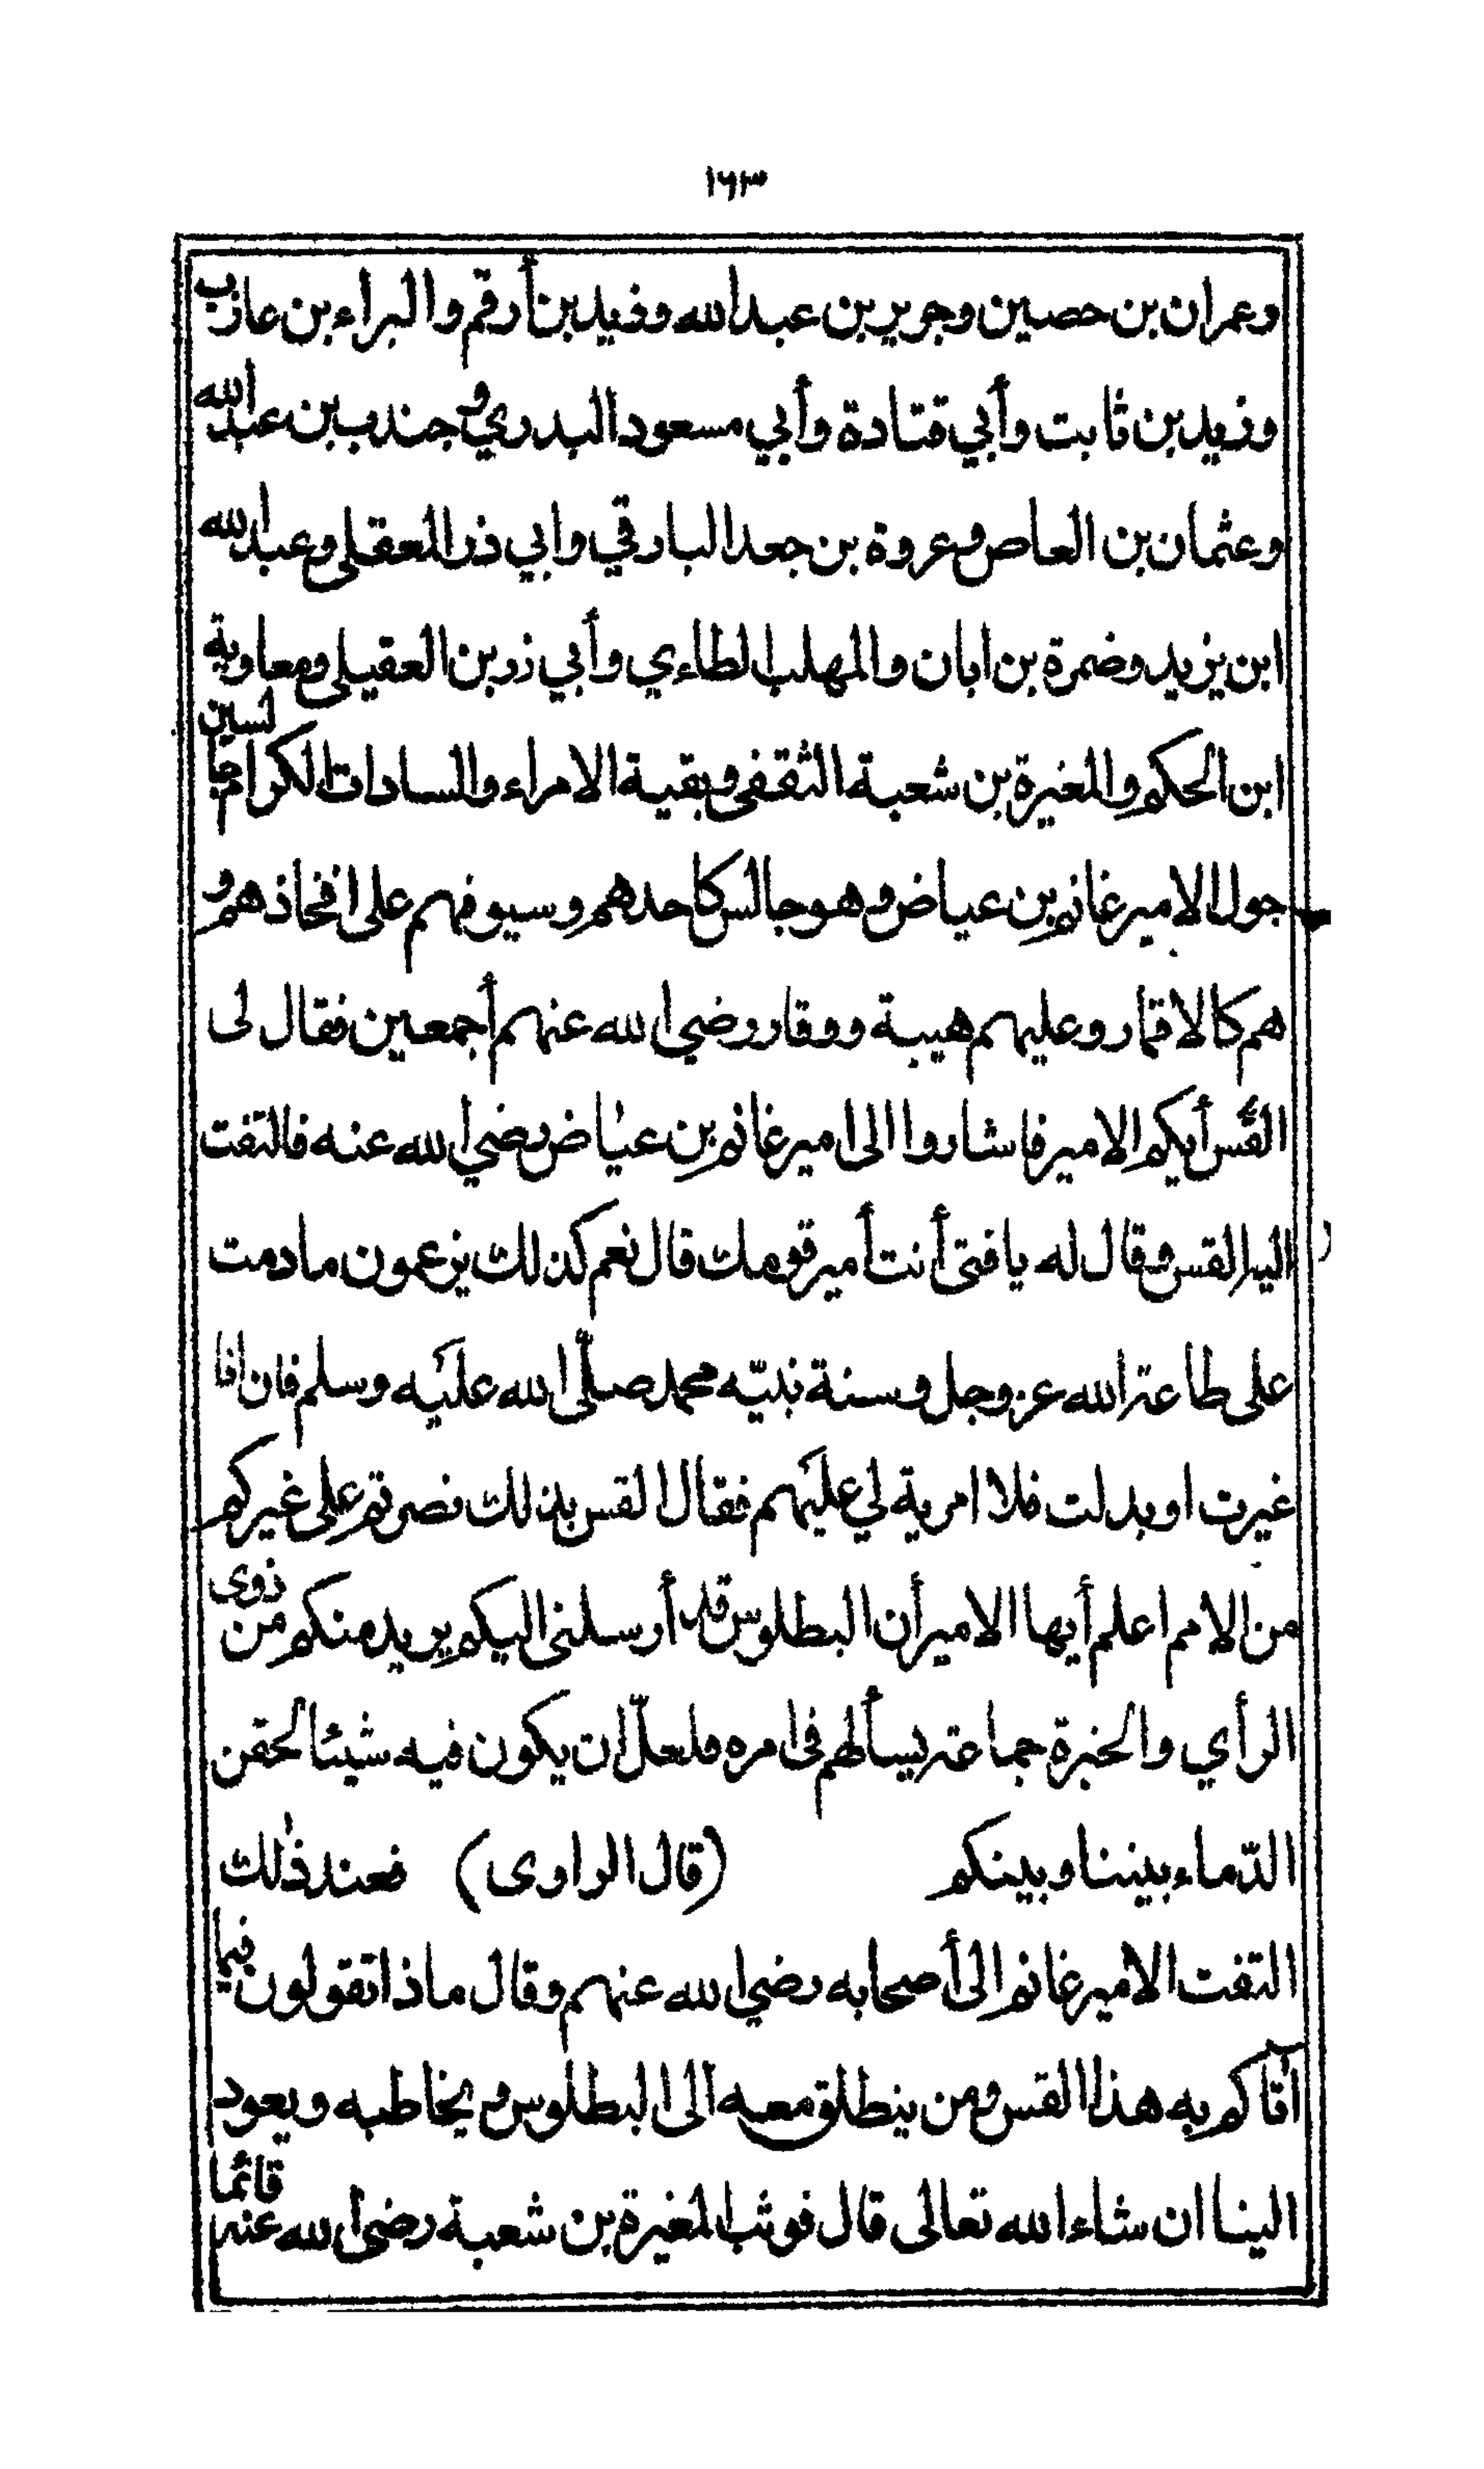 ١٦٣
وعمران بن حصين وجرير بن عبد الله وزيد بن أرقم والبراء بن عازب
وزيد بن ثابت وأبي قتادة وأبي مسعود البدري وجندب بن عبد الله
وعثمان بن العاص وعروة بن جعد البارقي وابي ذر العقلى وعبد الله
ابن يزيد وضمرة بن ابان والمهلب الطاءي وأبي زر بن العقيلى ومعاوية
ابن الحكم والمغيرة بن شعبة الثقفى وبقية الامراء والسادات الكرام جالسين
حول الامير غانم بن عياض وهو جالس كاحدهم وسيوفهم على افخاذهم و
هم كالاقمار وعليهم هيبة ووقار رضي الله عنهم أجمعين فقال لى
القس أيكم الامير فاشاروا الى امير غانم بن عياض رضي الله عنه فالتفت
اليه القس وقال له يا فتى أنت أمير قومك قال نعم كذلك يزعمون ما دمت
على طاعة الله عز وجل وسنة نبيّه محمد صلّى الله عليه وسلم فان انا
غيرت او بدلت فلا امرية لي عليهم فقال القس بذلك نصرتم على غيركم
من الامم اعلم أيها الامير أن البطلوس قد أرسلنى اليكم يريد منكم من ذوى
الرأي والخبرة جماعة يسألهم فى امره فلعلّ ان يكون فيه شيئا لحقن
الدّماء بيننا وبينكم (قال الراوى) فعند ذلك
التفت الامير غانم الى أصحابه رضي الله عنهم وقال ماذا تقولون فيما
أتاكم به هذا القس ومن ينطلق معه الى البطلوس ويخاطبه ويعود
الينا ان شاء الله تعالى قال فوثب المغيرة بن شعبة رضى الله عنه قائما